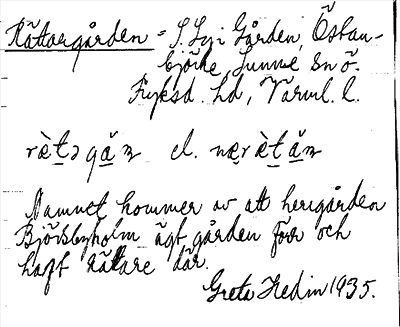 Rättaregården = S. Lyi Gården, Östan-
björke, Sunne sn ö.
Fryksd. hd, Värml. l.
rὲt̲ɘ gå̲n el. ne̲rὲt̲å̲n
Namnet kommer av att herrgården
Björkbyholm ägt gården förr och
haft rättare där.
Greta Hedin 1935.